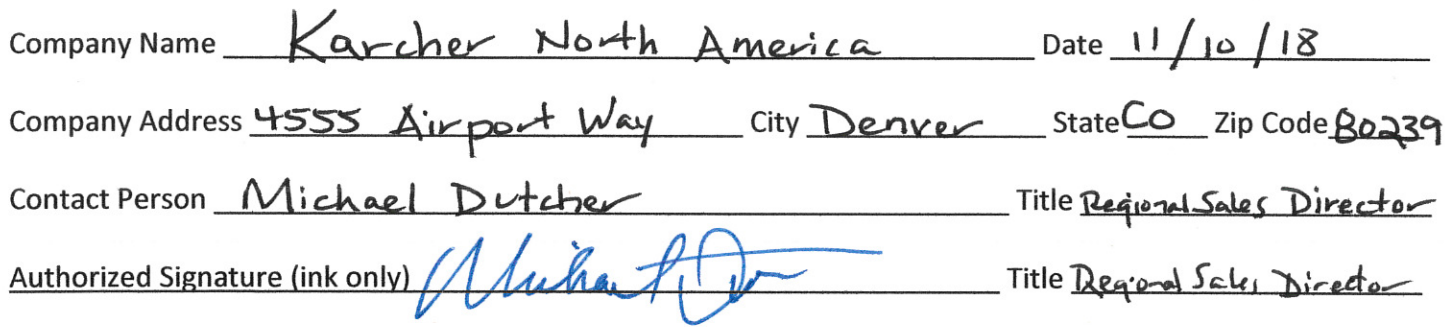 Company Name Karcher North America Date 11/10/18
Company Address 4555 Airport Way City Denver State CO Zip Code 80239
Contact Person Michael Dutcher Title Regional Sales Director
Authorized Signature (ink only) Title Regional Sales Director